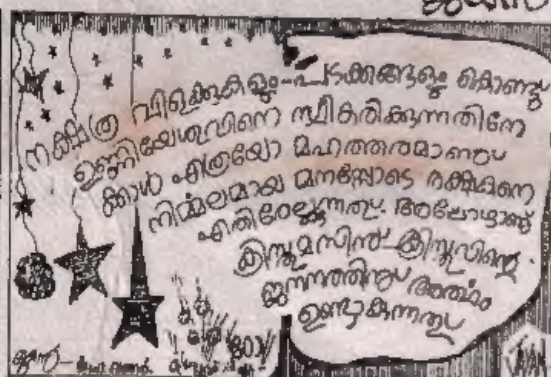 നക്ഷത്ര വിളക്കുകളും-പടക്കങ്ങളും കൊണ്ടു
ഉണ്ണിയേശുവിനെ സ്വീകരിക്കുന്നതിനേ
ക്കാൾ എത്രയോ മഹത്തരമാണു്
നിർമ്മലമായ മനസ്സോടെ രക്ഷകനെ
എതിരേല്ക്കുന്നതു്. അപ്പോഴാണു്
ക്രിസ്തുമസിനു്-ക്രിസ്തുവിന്റെ
ജനനത്തിനു് അർത്ഥം
ഉണ്ടാകുന്നതു്